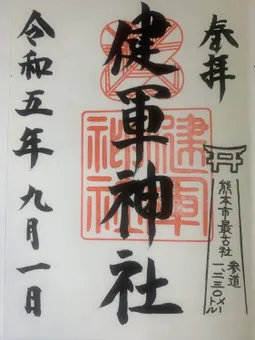 奉拝
健軍神社
健軍神社
熊本市最古社
参道
一、二三〇メートル
令和五年九月一日